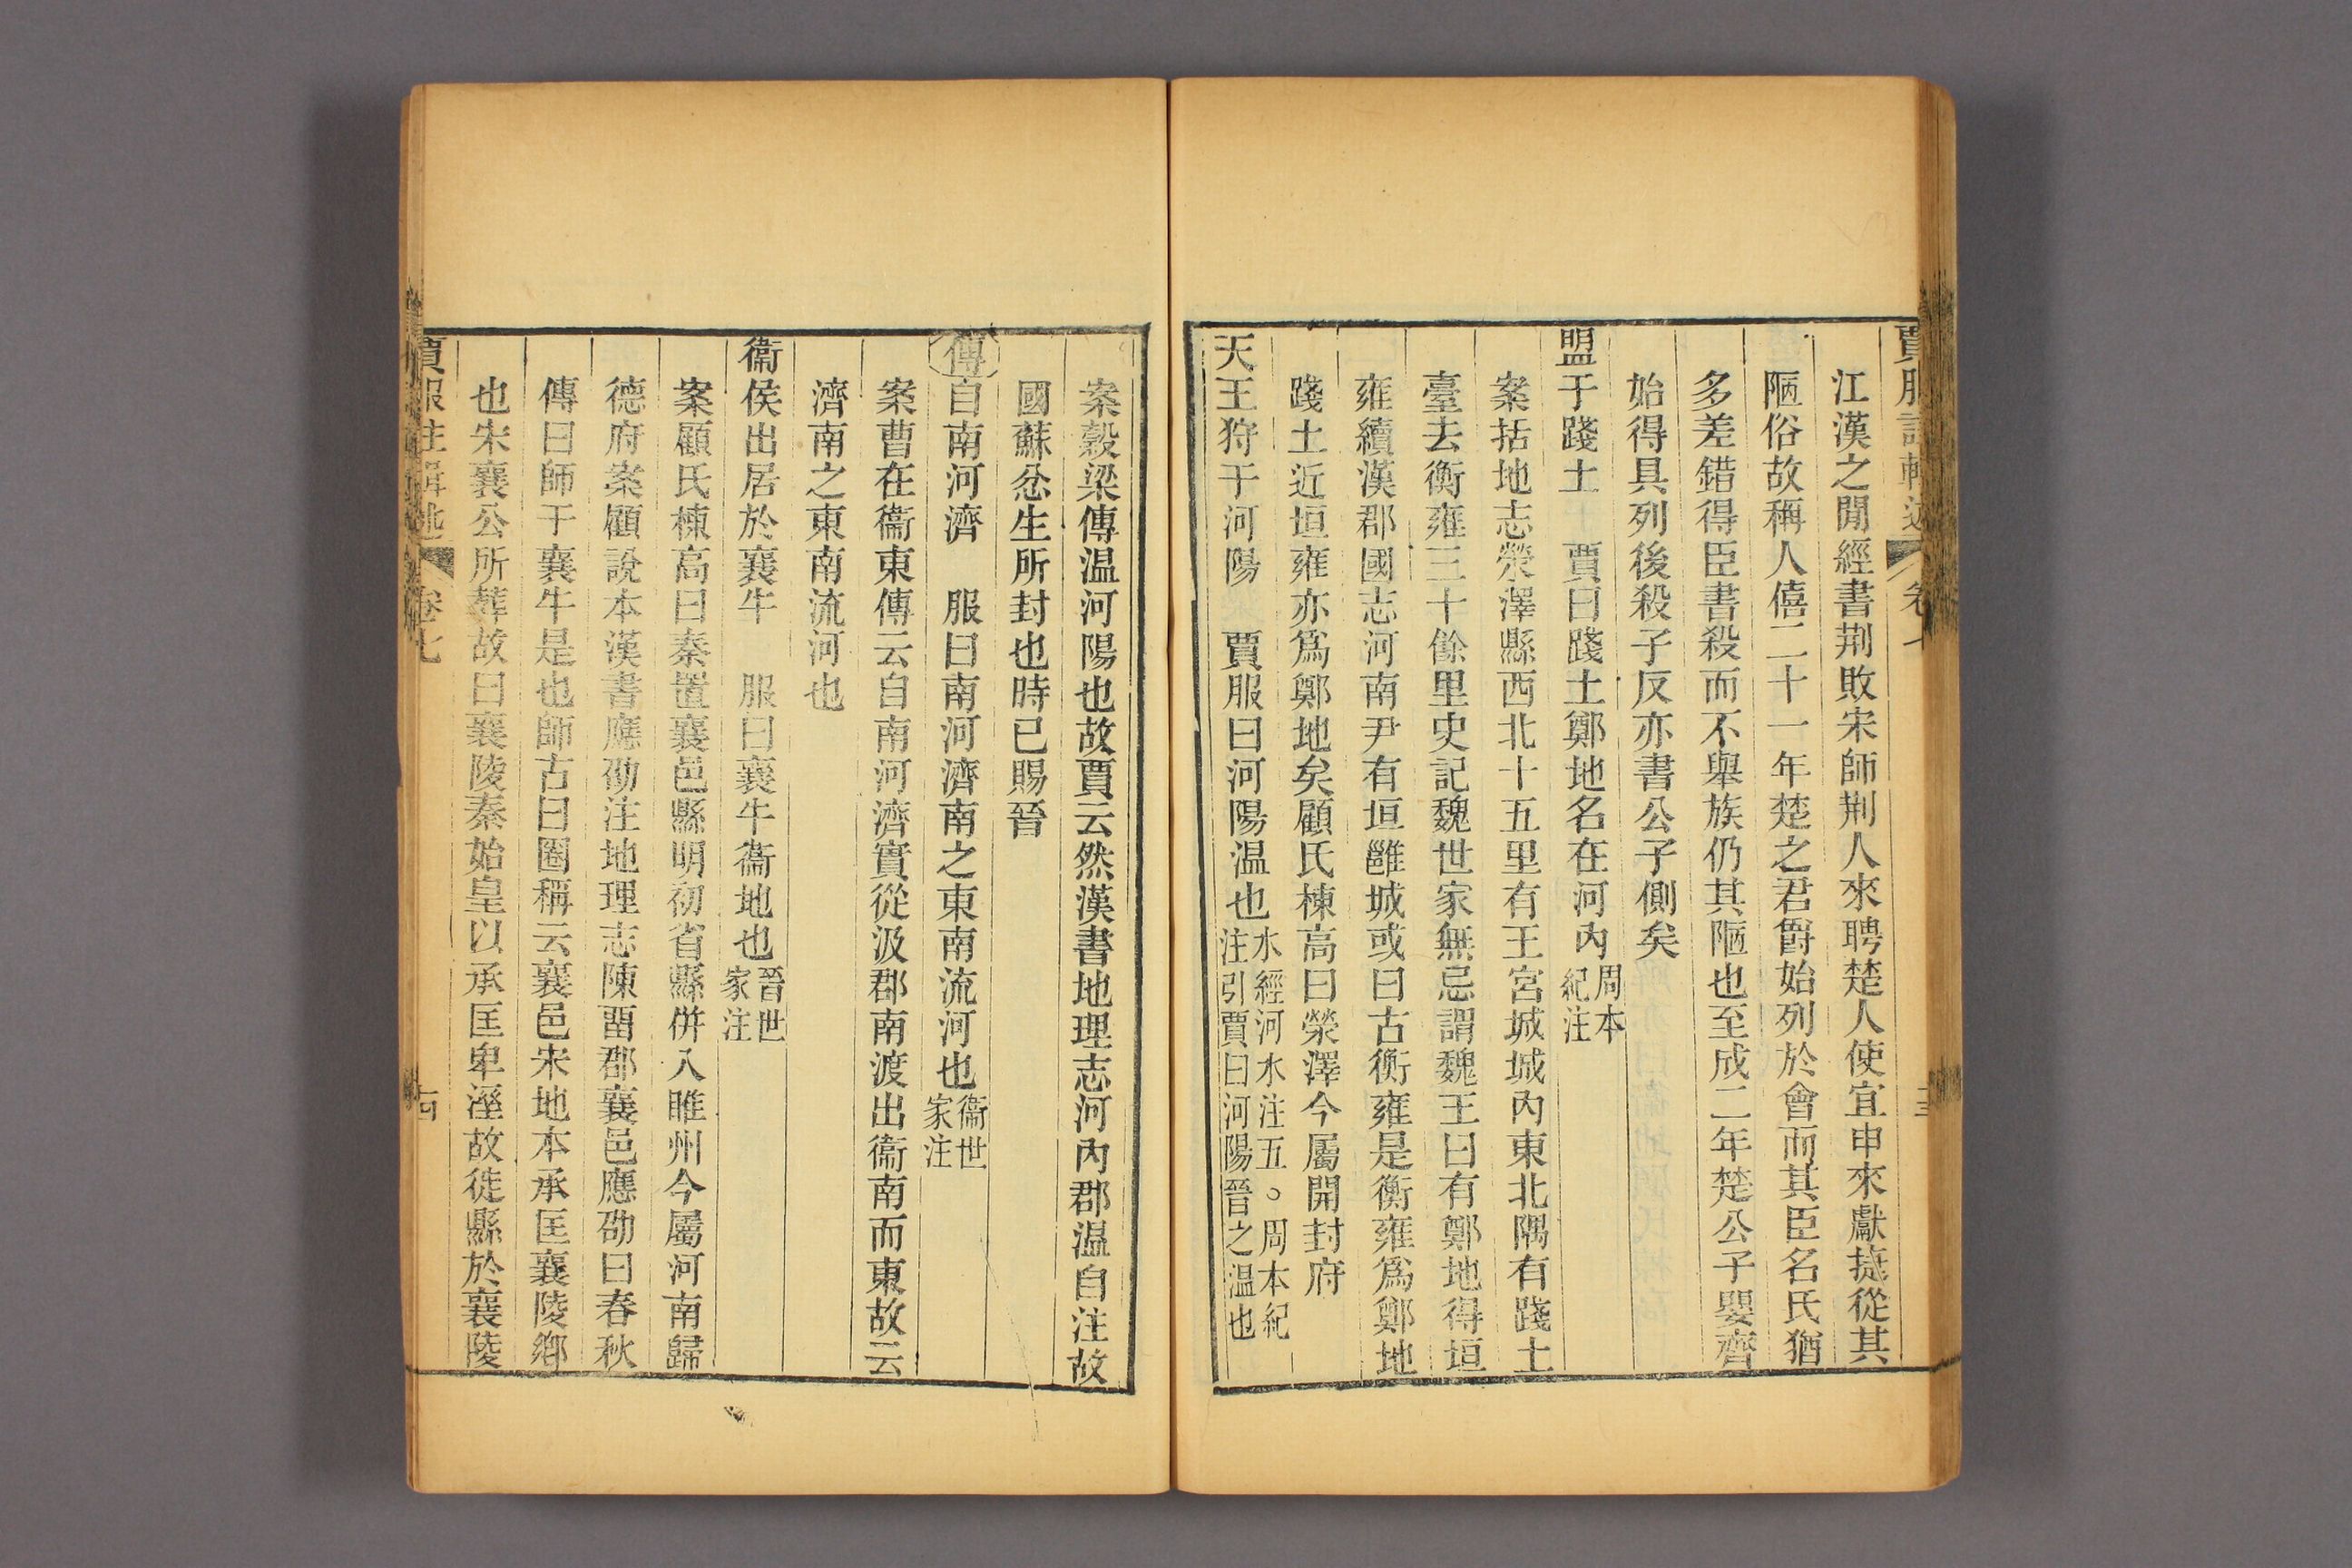 江漢之閒經書荆敗宋師荆人來聘楚人使宜申來獻捷從其
陋俗故稱人僖二十一年楚之君爵始列於會而其臣名氏猶
多差錯得臣書殺而不舉族仍其陋也至成二年楚公子嬰齊
始得具列後殺子反亦書公子側矣
盟于踐土　賈曰踐土鄭地名在河內周本紀注
案括地志滎澤縣西北十五里有王宮城城內東北隅有踐土
臺去衡雍三十餘里史記魏世家無忌謂魏王曰有鄭地得垣
雍續漢郡國志河南尹有垣雝城或曰古衡雍是衡雍爲鄭地
踐土近垣雍亦爲鄭地矣顧氏棟高曰滎澤今屬開封府
天王狩于河陽　賈服曰河陽温也水經河水注五。周本紀注引賈曰河陽晉之温也
案穀梁傳温河陽也故賈云然漢書地理志河內郡温自注故
國蘇忿生所封也時已賜晉
傳自南河濟　服曰南河濟南之東南流河也衞世家注
案曹在衞東傳云自南河濟實從汲郡南渡出衞南而東故云
濟南之東南流河也
衞侯出居於襄牛　服曰襄牛衞地也晉世家注
案顧氏棟高曰秦置襄邑縣明初省縣併入睢州今屬河南歸
德府案顧說本漢書應劭注地理志陳畱郡襄邑應劭曰春秋
傳曰師于襄牛是也師古曰圈稱云襄邑宋地本承匡襄陵鄉
也宋襄公所葬故曰襄陵秦始皇以承匡卑溼故徙縣於襄陵
賈服注輯述 卷七 十四